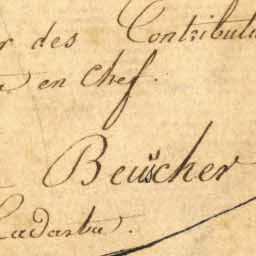 r des Contributi
en chef.
Beuscher
Cadastre.